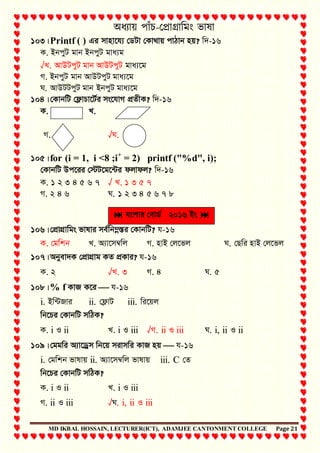 অধ্যায় পাঁচ-প্রোগ্রামিং ভাষা
১০৩।Printf ( ) এর সাহায্যে ডেটা কোথায় পাঠান হয়? দি-১৬
ক. ইনপুট মান ইনপুট মাধ্যম
√খ. আউটপুট মান আউটপুট মাধ্যমে
গ. ইনপুট মান আউটপুট মাধ্যমে
ঘ. আউটটপুট মান ইনপুট মাধ্যমে
১০৪।কোনটি ফ্লোচার্টের সংযোগ প্রতীক? দি-১৬
ক. খ.
গ. √ঘ.
১০৫।for (i = 1, i <8 ;i+ = 2) printf ("%d", i);
কোনটি উপরের স্টেটমেন্টের ফলাফল? দি-১৬
ক. ১ ২ ৩ ৪ ৫ ৬ ৭ √ খ. ১ ৩ ৫ ৭
গ. ২ ৪ ৬ ঘ. ১ ২ ৩ ৪ ৫ ৬ ৭ ৮
⏭ যশোর বোর্ড ২০১৬ ইং ⏭
১০৬।প্রোগ্রামিং ভাষার সর্বনিম্নস্তর কোনটি? য-১৬
ক. মেশিন খ. অ্যাসেম্বলি গ. হাই লেভেল ঘ. ভেরি হাই লেভেল
১০৭।অনুবাদক প্রোগ্রাম কত প্রকার? য-১৬
ক. ২ √খ. ৩ গ. ৪ ঘ. ৫
১০৮।% f কাজ করে — য-১৬
i. ইন্টিজার ii. ফ্লোট iii. রিয়েল
নিচের কোনটি সঠিক?
ক. i ও ii খ. i ও iii √গ. ii ও iii ঘ. i, ii ও iii
১০৯।মেমরি অ্যাড্রেস নিয়ে সরাসরি কাজ হয় — য-১৬
i. মেশিন ভাষায় ii. অ্যাসেম্বলি ভাষায় iii. C তে
নিচের কোনটি সঠিক?
ক. i ও ii খ. i ও iii
গ. ii ও iii √ঘ. i, ii ও iii
MD IKBAL HOSSAIN, LECTURER(ICT), ADAMJEE CANTONMENT COLLEGE Page 21